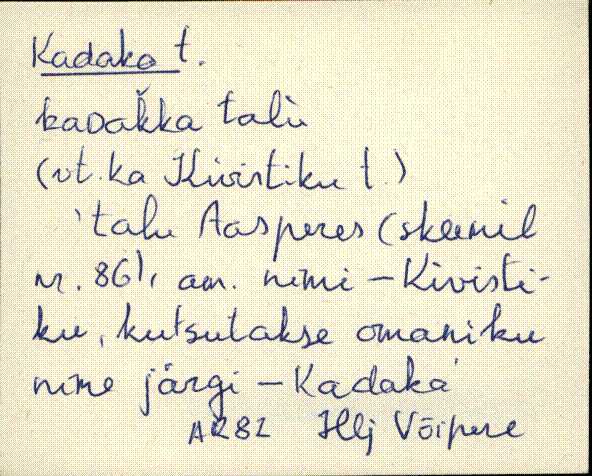 Kadaka t.
kaDak̆ka talu
(vt. ka Kivistiku t.)
'talu Aasperes (skeemil
nr. 86), am. nimi – Kivisti-
ku, kutsutakse omaniku
nime järgi – Kadaka'
AR82 Hlj Võipere